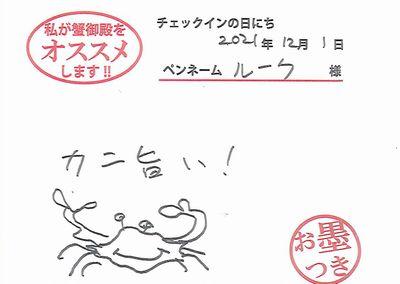 私が蟹御殿を
オススメ
します!!
チェックインの日にち
2021年12月1日
ペンネーム ルーク 様
カニ旨い!
お墨
つき